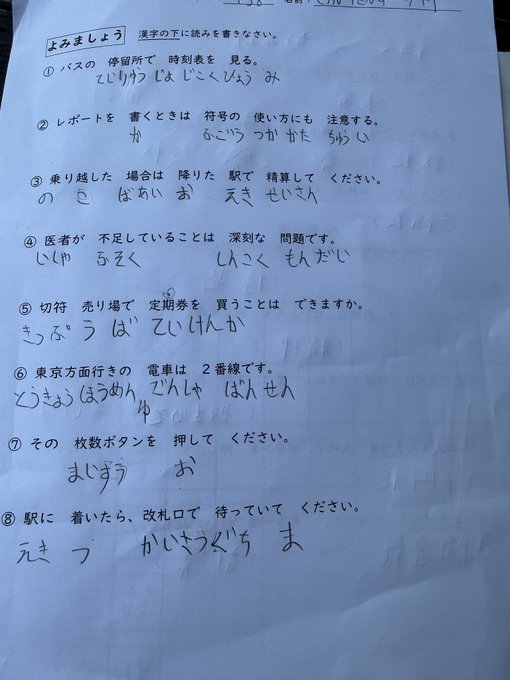 名前:
よみましょう 漢字の下に読みを書きなさい。
① バスの 停留所で 時刻表を 見る。
てじりゅう じょ じこくひょう み
② レポートを 書くときは 符号の 使い方にも 注意する。
か ふごう つか かた ちゅうい
③ 乗り越した 場合は 降りた 駅で 精算して ください。
の こ ばあい お えき せいさん
④ 医者が 不足していることは 深刻な 問題です。
いしゃ ふそく しんこく もんだい
⑤ 切符 売り場で 定期券を 買うことは できますか。
きっぷ う ば ていけん か
⑥ 東京方面行きの 電車は 2番線です。
とうきょうほうめん でんしゃ ばんせん
ゆ
⑦ その 枚数ボタンを 押して ください。
まいすう お
⑧ 駅に 着いたら、改札口で 待っていて ください。
えき つ かいさつぐち ま